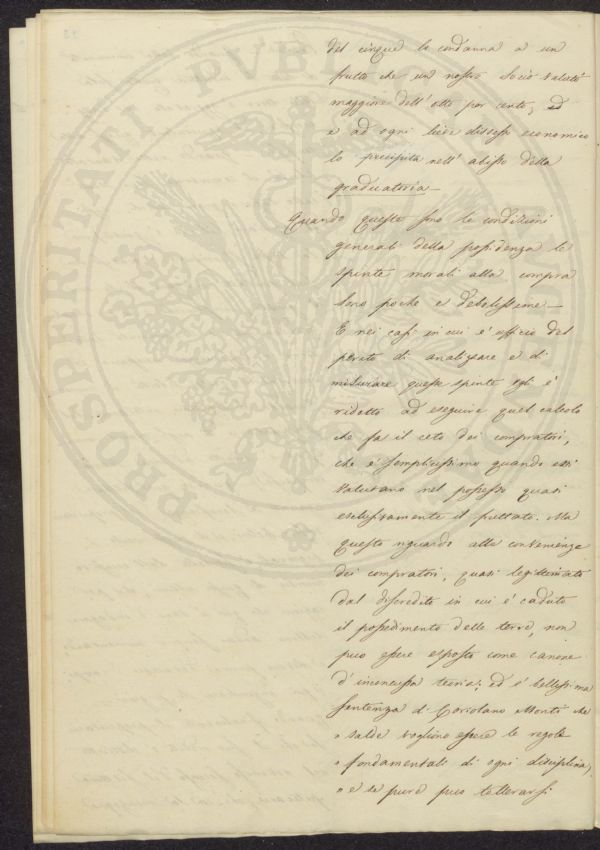 del cinque lo condanna a un
frutto che un nostro socio valutò
maggiore dell' otto per cento, ed
e ad ogni lieve dissesto economico
lo precipita nell' abisso della
graduatoria —
Quando queste sono le condizioni
generali della possidenza le
spinte morali alla compra
sono poche e debolissime —
E nei casi in cui è officio del
perito di analizzare e di
misurare queste spinte egli è
ridotto ad eseguire quel calcolo
che fa il ceto dei compratori,
che è semplicissimo quando essi
valutano nel possesso quasi
esclusivamente il fruttato. Ma
questo riguardo alla convenienza
dei compratori, quasi legittimato
dal discredito in cui è caduto
il possedimento delle terre, non
puo essere esposto come canone
d' inconcussa teoria; ed è bellissima
sentenza di Coriolano Monti che
" salde vogliono essere le regole
" fondamentali di ogni disciplina,
" e se pure puo tollerarsi
PROSPERITATI PVBLICAE